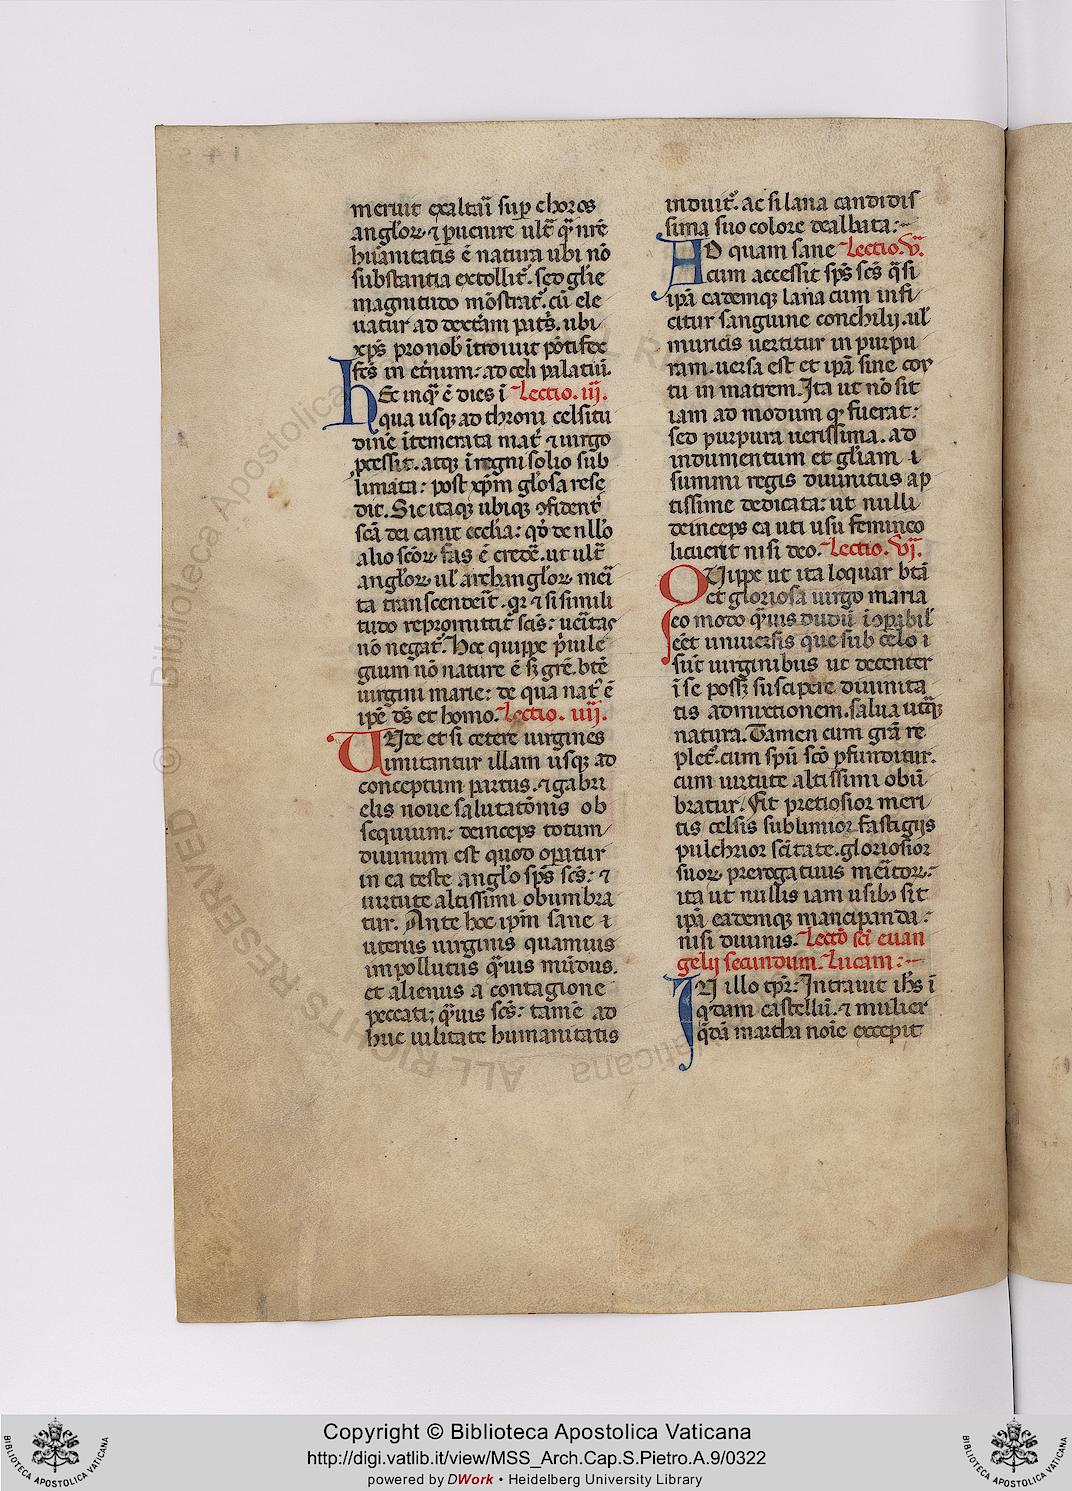 meruit exaltari sup choros
angloꝝ ⁊ puenire ultͣ qͣ nrē
humanitatis ē natura ubi nō
substantia extollit᷑. sed glie
magnitudo mōstrat᷑. cū ele
uatur ad dextam patis. ubi
xp̄s pro nob̄ ītroiuit pōtifex
fc̄s in et̄num: ad celi palatiū.
Hec inqͣ ē dies ī Lectio .iij.
qua usqꝫ ad throni celsitu
dinē ītemerata mat᷑ ⁊ uirgo
ꝓcessit. atqꝫ ī regni solio sub
limata: post xpm glosa rese
dit. Sic itaqꝫ ubiqꝫ ꝯfident᷑
scā dei canit ecclia: qd de nllo
alio scōꝝ fas ē crede. ut ultͣ
angloꝝ ul archangloꝝ meri
ta transcendeit. qꝛ ⁊ si simili
tudo repromittit᷑ scīs: ueritas
nō negat᷑. Hoc quippe priuile
gium nō nature ē sꝫ gre. bte
uirgini marie: de qua nat᷑ ē
ipē ds et homo. Lectio .iiij.
UNde et si cetere uirgines
imitantur illam usqꝫ ad
conceptum partus. ⁊ gabri
elis noue salutatōnis ob
sequium: deinceps totum
diuinum est quod operatur
in ea teste anglo sps scs: ⁊
uirtute altissimi obumbra
tur. Ante hoc ipm sane ⁊
uterus uirginis quamuis
impollutus qͣuis mūdus.
et alienus a contagione
peccati; qͣuis scs: tamē ad
huc uilitate humanitatis
induit᷑. ac si lana candidis
sima suo colore dealbata:
AD quam sane Lectio .v.
cum accessit sps scs qͣsi
ipā eademqꝫ lana cum infi
citur sanguine conchilij. ul
muricis uertitur in purpu
ram. uersa est et ipā sine coy
tu in matrem. Ita ut nō sit
iam ad modum qͣ fuerat:
sed purpura uerissima. ad
indumentum et gliam ī
summi regis diuinitus ap
tissime dedicata: ut nulli
deinceps ea uti usu femineo
licuerit nisi deo. Lectio .vi.
QUippe ut ita loquar btā
et gloriosa uirgo maria
eo modo qͣuis dudū īoparibil
eēt uniuersis que sub celo ī
sut uirginibus ut decenter
ī se possꝫ suscipere diuinita
tis admixtionem. salua utͣqꝫ
natura. Tamen cum grā re
plet᷑. cum spū scō pfunditur.
cum uirtute altissimi obū
bratur. Fit pretiosior meri
tis celsis sublimior fastigijs
pulchrior scītate. gloriosior
suoꝝ prerogatiuis meritoꝝ:
ita ut nullis iam usibꝫ sit
ipā eademqꝫ mancipanda:
nisi diuinis. Lectō sci euan
gelij secundum. Lucam:
IN illo tpr: Intrauit ihs ī
qͦdam castellū. ⁊ mulier
qͣdā martha noīe excepit
Copyright © Biblioteca Apostolica Vaticana
http://digi.vatlib.it/view/MSS_Arch.Cap.S.Pietro.A.9/0322
powered by DWork • Heidelberg University Library
BIBLIOTECA APOSTOLICA VATICANA
BIBLIOTECA APOSTOLICA VATICANA